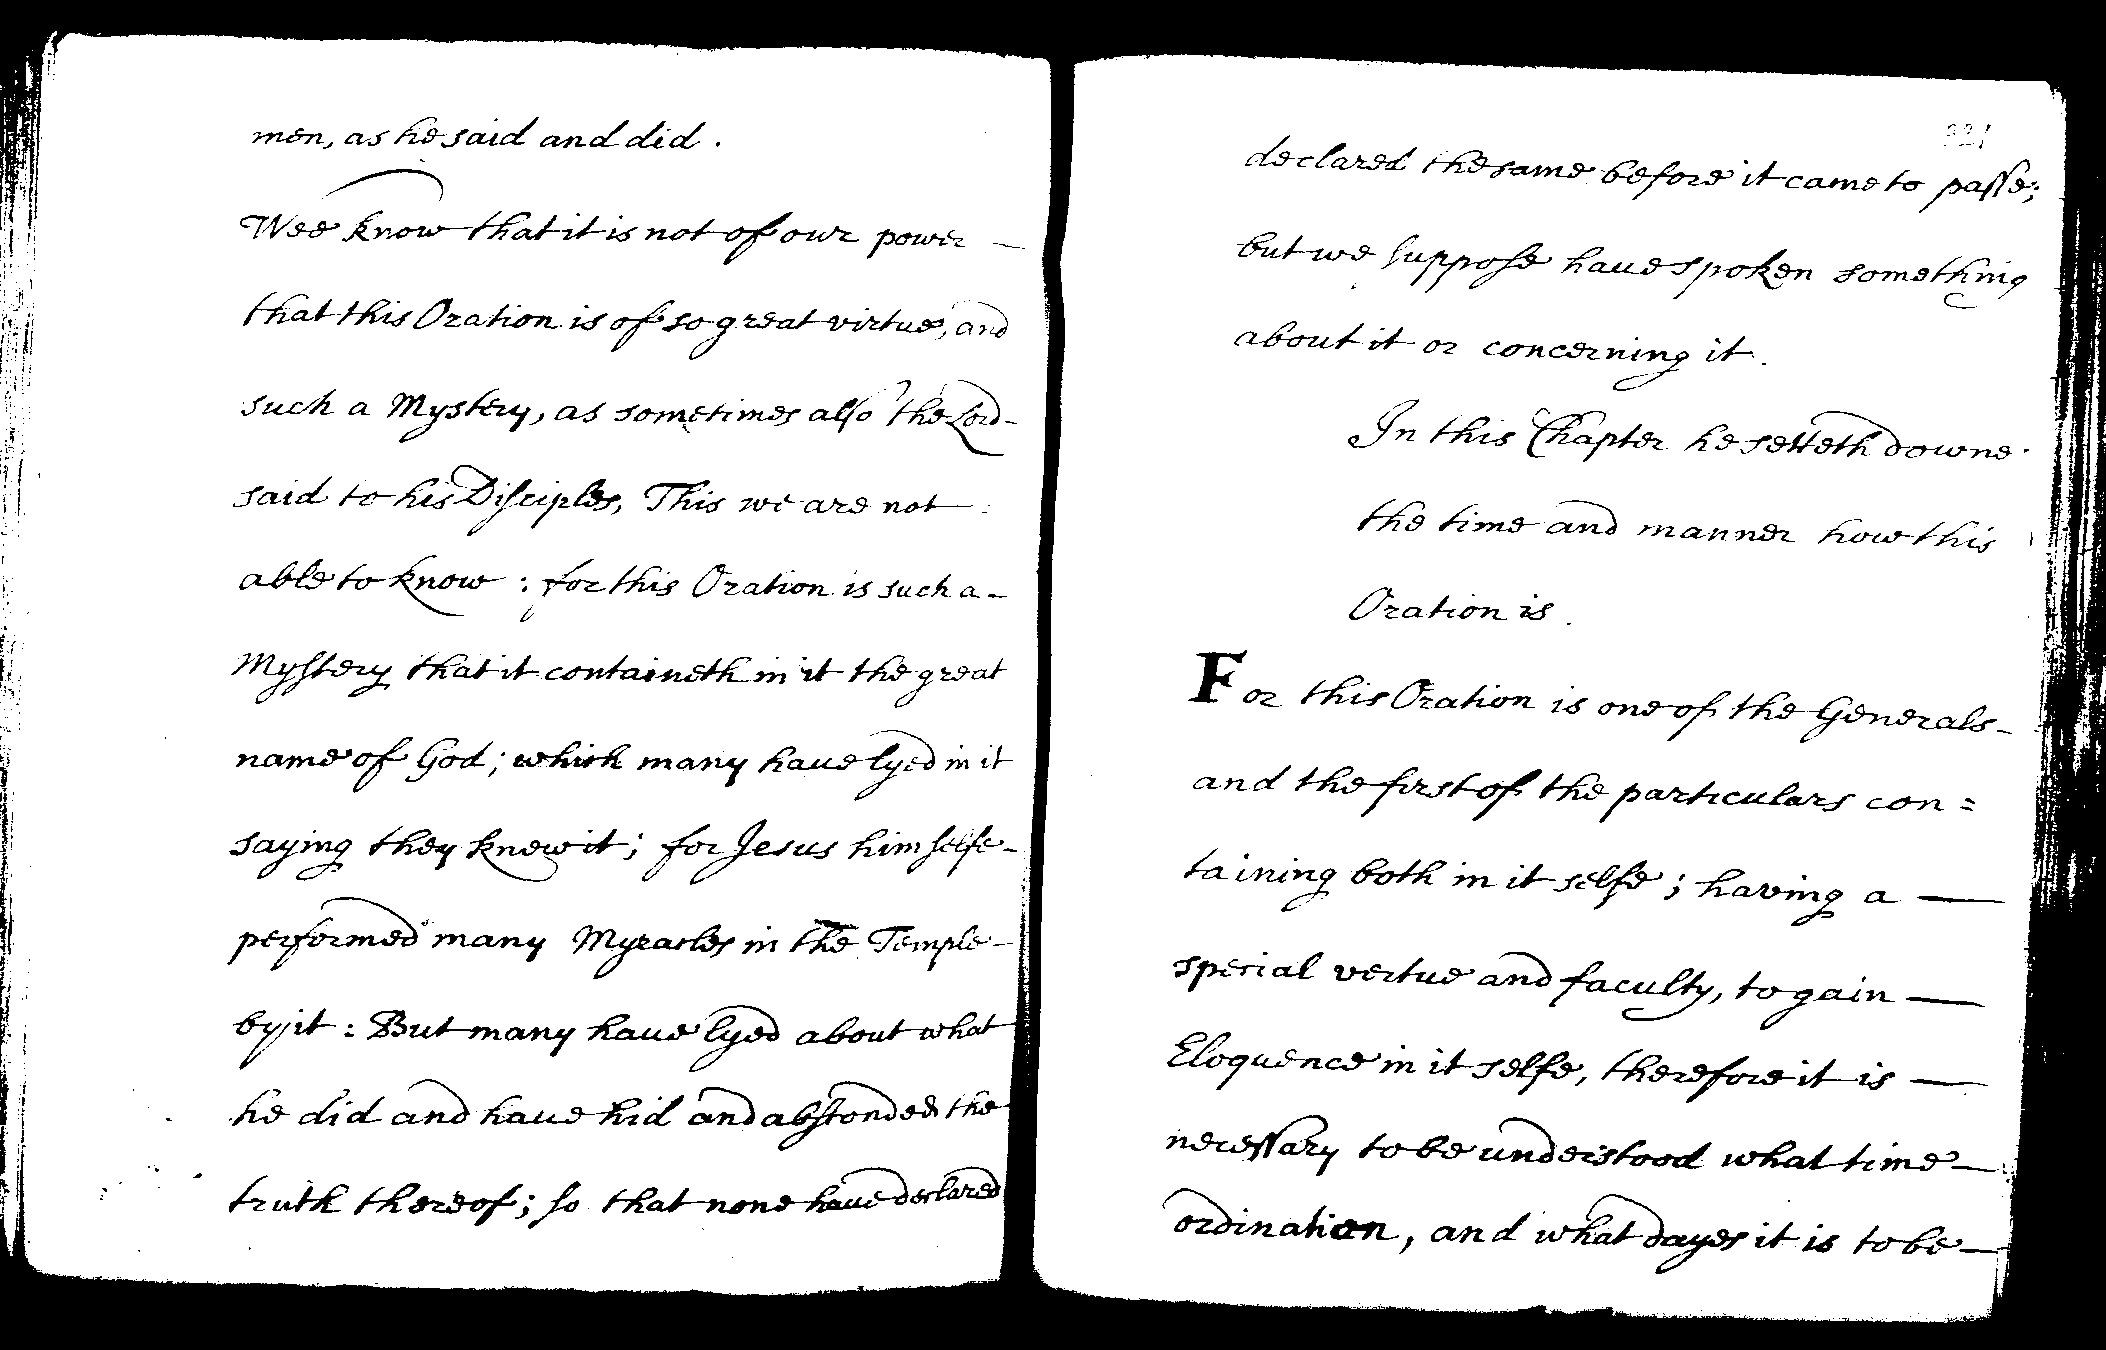 men, as he said and did.
Wee know that it is not of our power
that this Oration is of so great virtue, and
such a Mystery, as sometimes also the Lord
said to his Disciples, This we are not
able to know: for this Oration is such a
Mystery that it containeth in it the great
name of God; which many have lyed in it
saying they knew it; for Jesus himselfe
performed many Myracles in the Temple
by it: But many have lyed about what
he did and have hid and absconded the
truth thereof; so that none have declared
221
declared the same before it came to passe;
but we suppose have spoken something
about it or concerning it.
In this Chapter he setteth downe
the time and manner how this
Oration is.
For this Oration is one of the Generals
and the first of the particulars con=
taining both in it selfe; having a
special vertue and faculty, to gain
Eloquence in it selfe, therefore it is
necessary to be understood what time
ordination, and what dayes it is to be